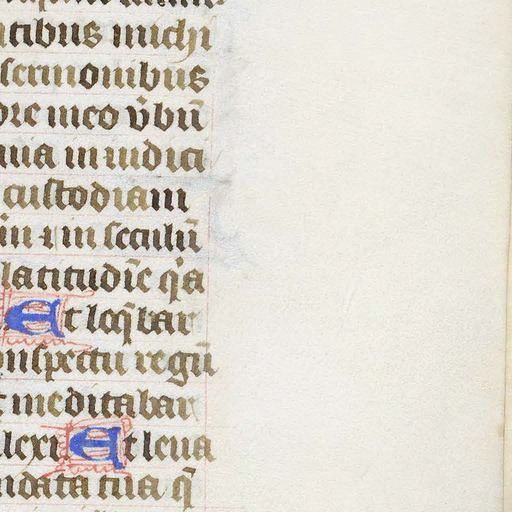 tibus michi
sermonibus
ore meo v̄bū
uia in iudici
custodiam
in ⁊ in seculū
latitudīe q̓a
Et loq̄bar
onspectu regū
t meditabar
lexi Et leua
ndata tua q̄